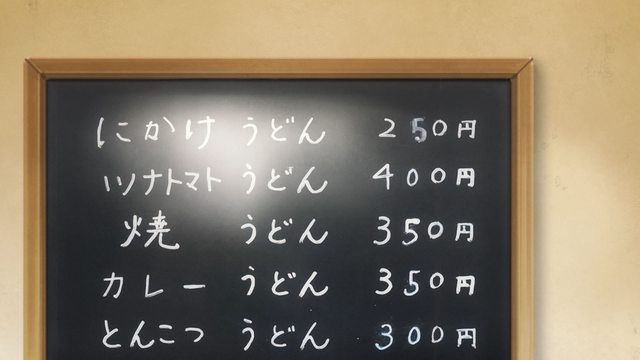 にかけ うどん 250円
ツナトマト うどん 400円
焼 うどん 350円
カレー うどん 350円
とんこつ うどん 300円